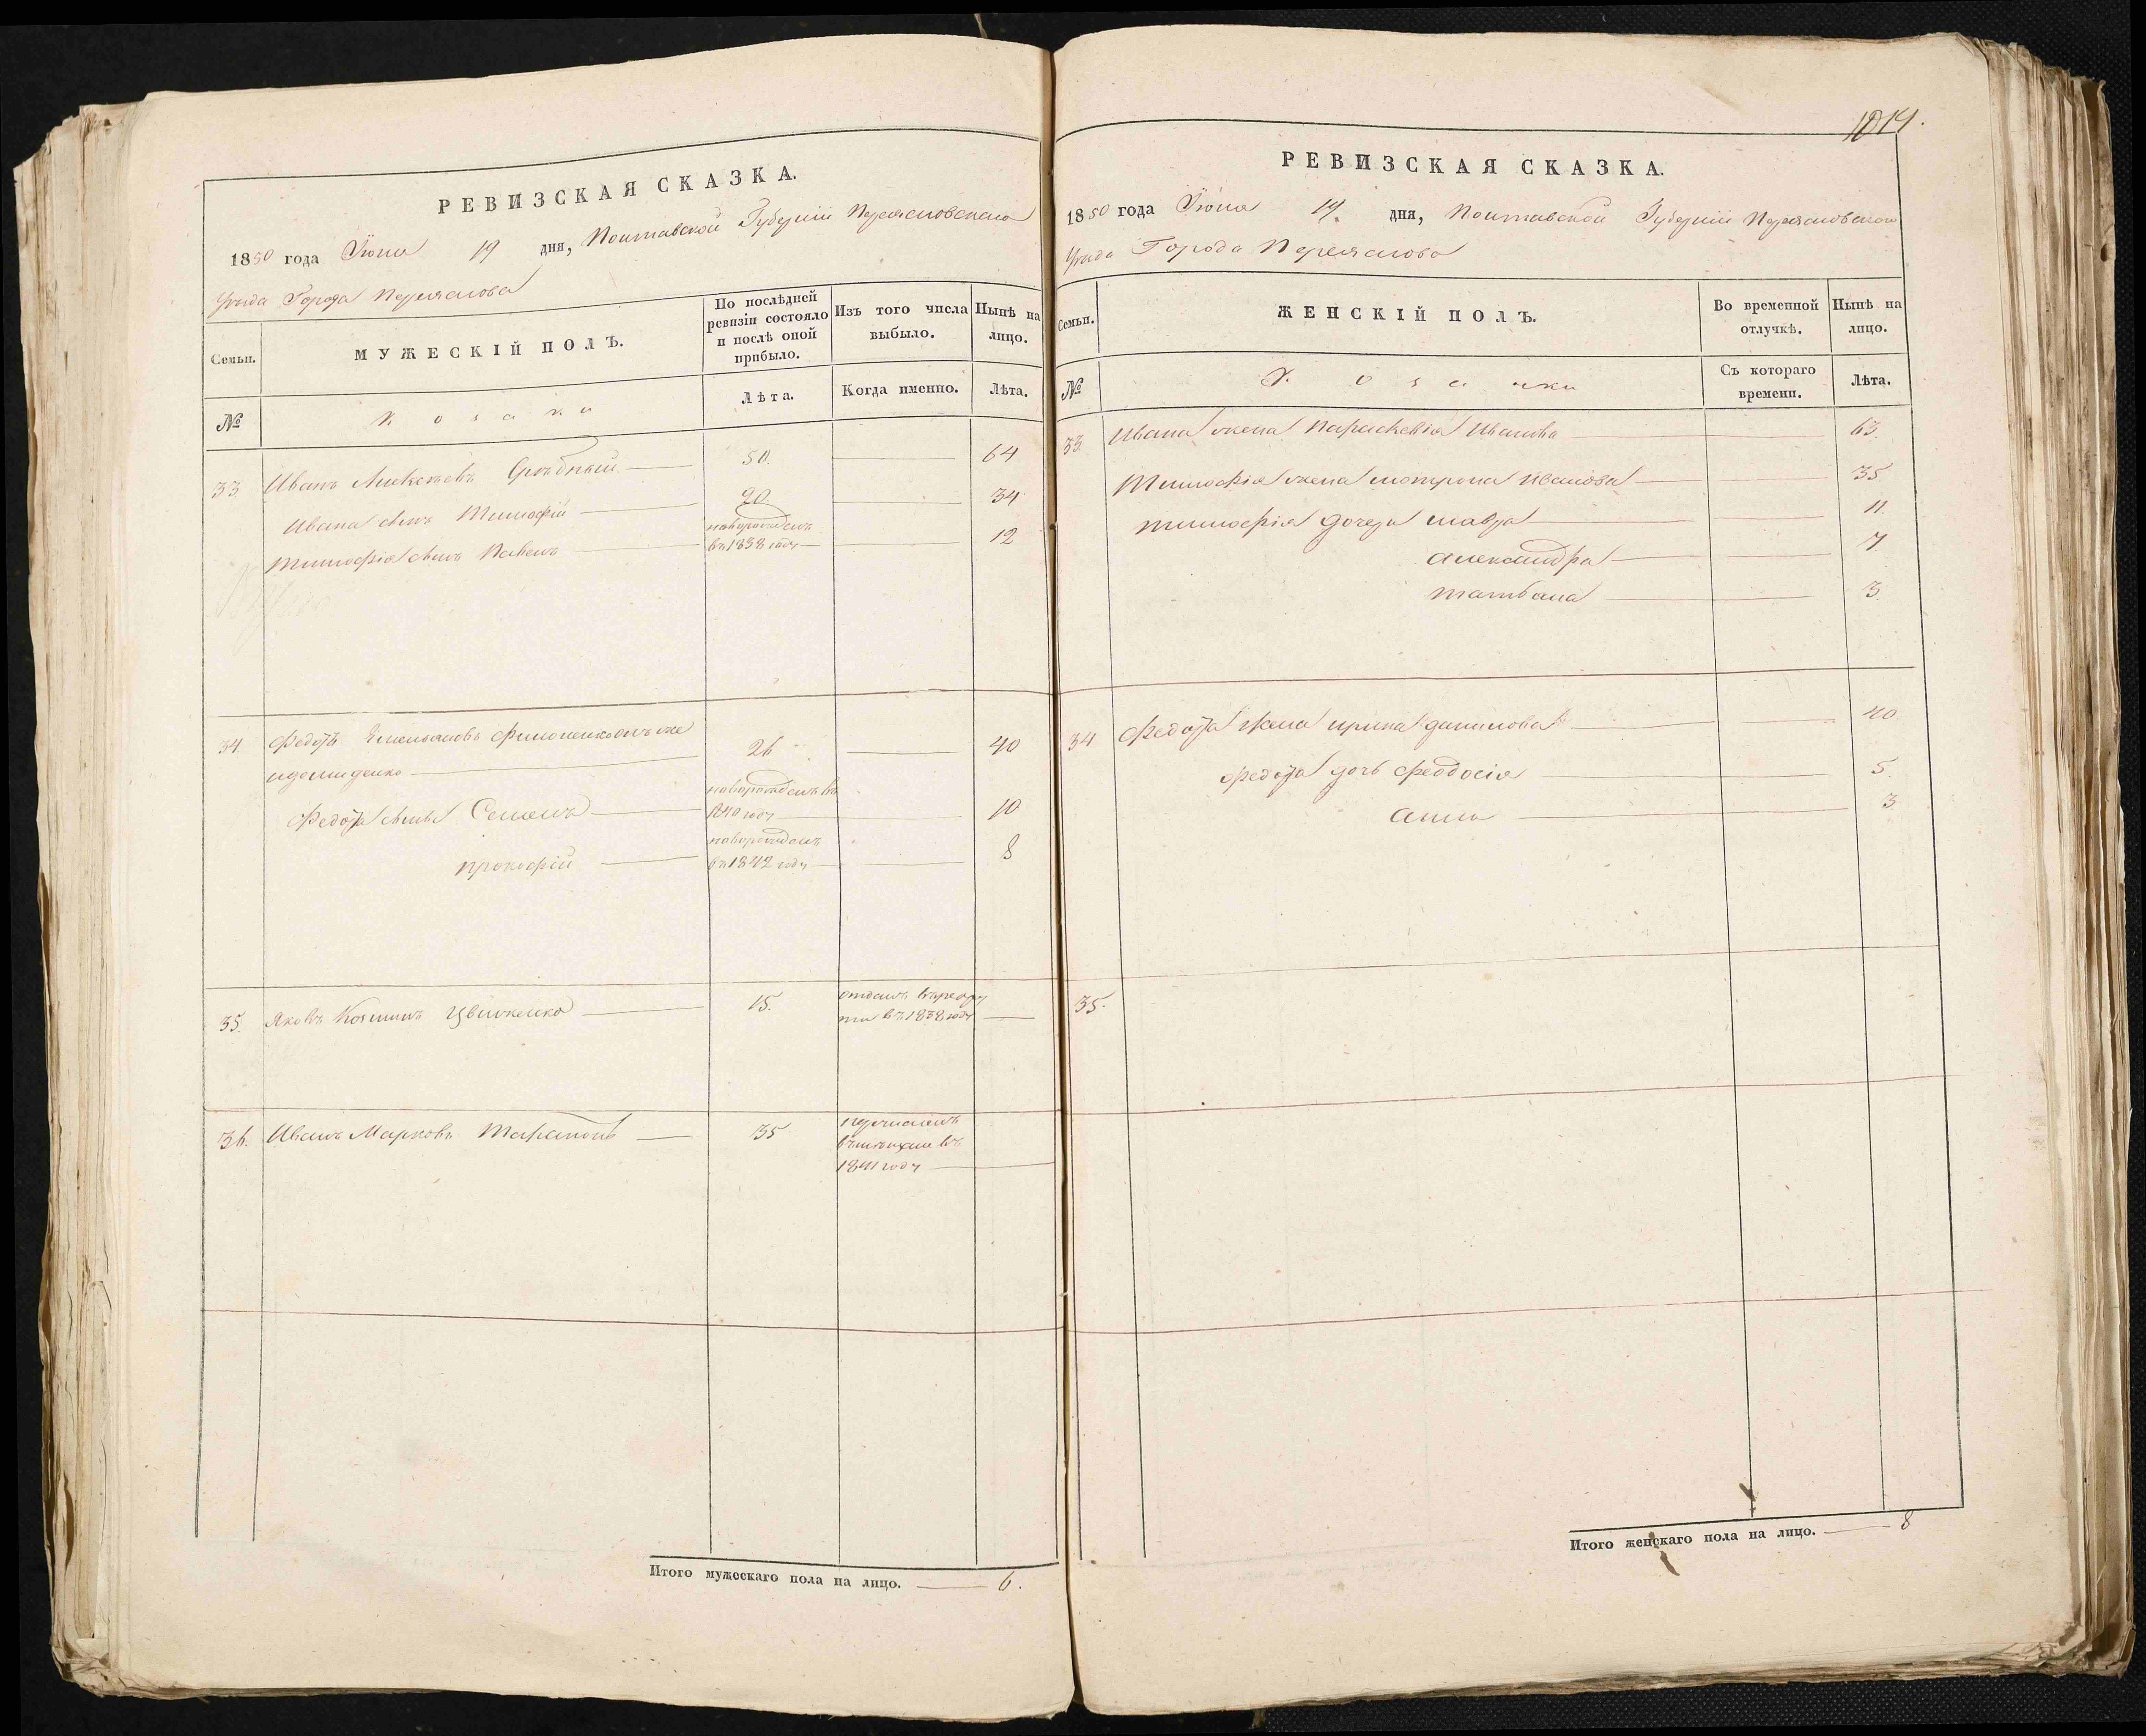 РЕВИЗСКАЯ СКАЗКА.
1850 года Іюня 19 дня, Полтавской Губерніи Переясловскаго
Уѣзда Города Переяслова
Семьи.
МУЖЕСКІЙ ПОЛЪ.
По послѣдней ревизіи состояло и послѣ оной прибыло.
Изъ того числа выбыло.
Нынѣ на лицо.
№
Козаки
Лѣта.
Когда именно.
Лѣта.
33 Иванъ Алексѣевъ 50. 64
Ивана сынъ Тимофій 20 34
Тимофія сынъ Павелъ новорожденъ въ 1838 году 12
34. Федотъ Емельяновъ Филоненко онъ же
26 40
Федота сынъ Семенъ новорожденъ въ 1840 году 10
Прокофій новорожденъ въ 1842 году 8
35. Яковъ 15. отданъ въ рекруты въ 1838 году
36. Иванъ Марковъ 35 перечисленъ
въ мѣщане въ
1841 году
Итого мужескаго пола на лицо. 6.
1014.
РЕВИЗСКАЯ СКАЗКА.
1850 года Іюня 19. дня, Полтавской Губерніи Переясловскаго
Уѣзда Города Переяслова
Семьи.
ЖЕНСКІЙ ПОЛЪ.
Во временной отлучкѣ.
Нынѣ на лицо.
№
Козачки
Съ котораго времени.
Лѣта.
33. Ивана жена Параскевія Иванова 63.
Тимофія жена Мотрона Иванова 35
Тимофія дочери Мавра 11.
Александра 7
Татьяна 3.
34 Федота жена Ирина Данилова 40.
Федота дочь Феодосія 5.
Анна 3
35.
Итого женскаго пола на лицо. 8